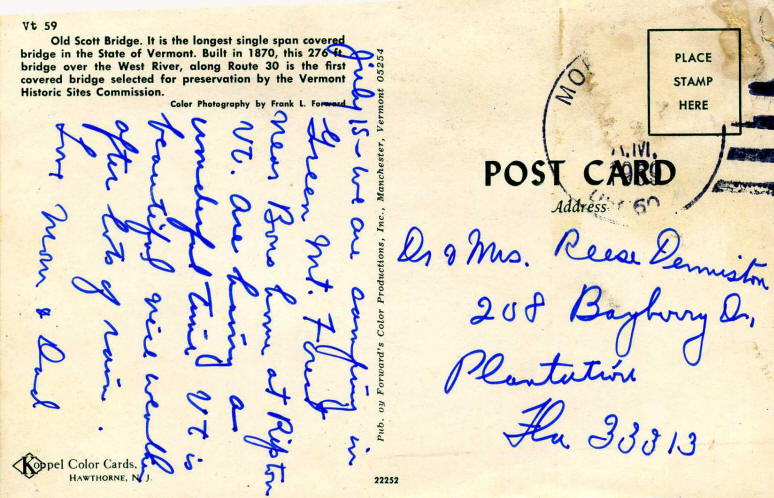 Vt 59
Old Scott Bridge. It is the longest single span covered
bridge in the State of Vermont. Built in 1870, this 276 ft.
bridge over the West River, along Route 30 is the first
covered bridge selected for preservation by the Vermont
Historic Sites Commission.
Color Photography by Frank L. Forward
July 15 - We are camping in
Green Mt. Forest
near Bons home at Ripton
Vt. Are having a
wonderful time Vt is
beautiful nice weather
after lots of rain.
Love Mom & Dad
Koppel Color Cards,
HAWTHORNE, N. J.
Pub. by Forward's Color Productions, Inc., Manchester, Vermont 05254
22252
PLACE
STAMP
HERE
A.M.
POST CARD
Address
Dr & Mrs. Reese Denniston
208 Bayberry Dr,
Plantation
Fla 33313